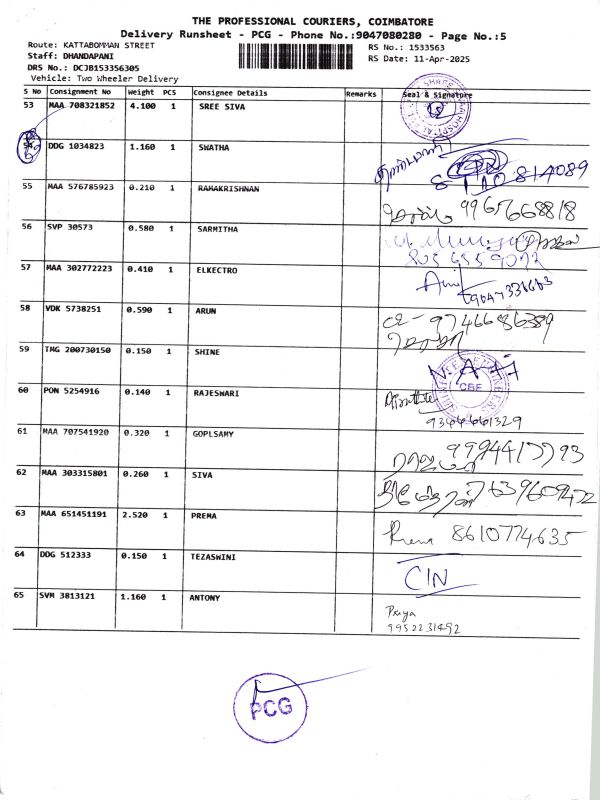 THE PROFESSIONAL COURIERS, COIMBATORE
Delivery Runsheet - PCG - Phone No.:9047080280 - Page No.:5
Route: KATTABOMMAN STREET RS No.: 1533563
Staff: DHANDAPANI RS Date: 11-Apr-2025
DRS No.: DCJB153356305
Vehicle: Two Wheeler Delivery
S No Consignment No Weight PCS Consignee Details Remarks Seal & Signature
53 MAA 708321852 4.100 1 SREE SIVA
54 DDG 1034823 1.160 1 SWATHA
55 MAA 576785923 0.210 1 RAMAKRISHNAN
9965668818
56 SVP 30573 0.580 1 SARMITHA
57 MAA 302772223 0.410 1 ELKECTRO
58 VDK 5738251 0.590 1 ARUN
59 TMG 200730150 0.150 1 SHINE
CBE
60 PON 5254916 0.140 1 RAJESWARI
9344661329
61 MAA 707541920 0.320 1 GOPLSAMY
62 MAA 303315801 0.260 1 SIVA
7639609472
63 MAA 651451191 2.520 1 PREMA Prema 8610774635
64 DDG 512333 0.150 1 TEZASWINI CIN
65 SVM 3813121 1.160 1 ANTONY Priya
9952231492
PCG